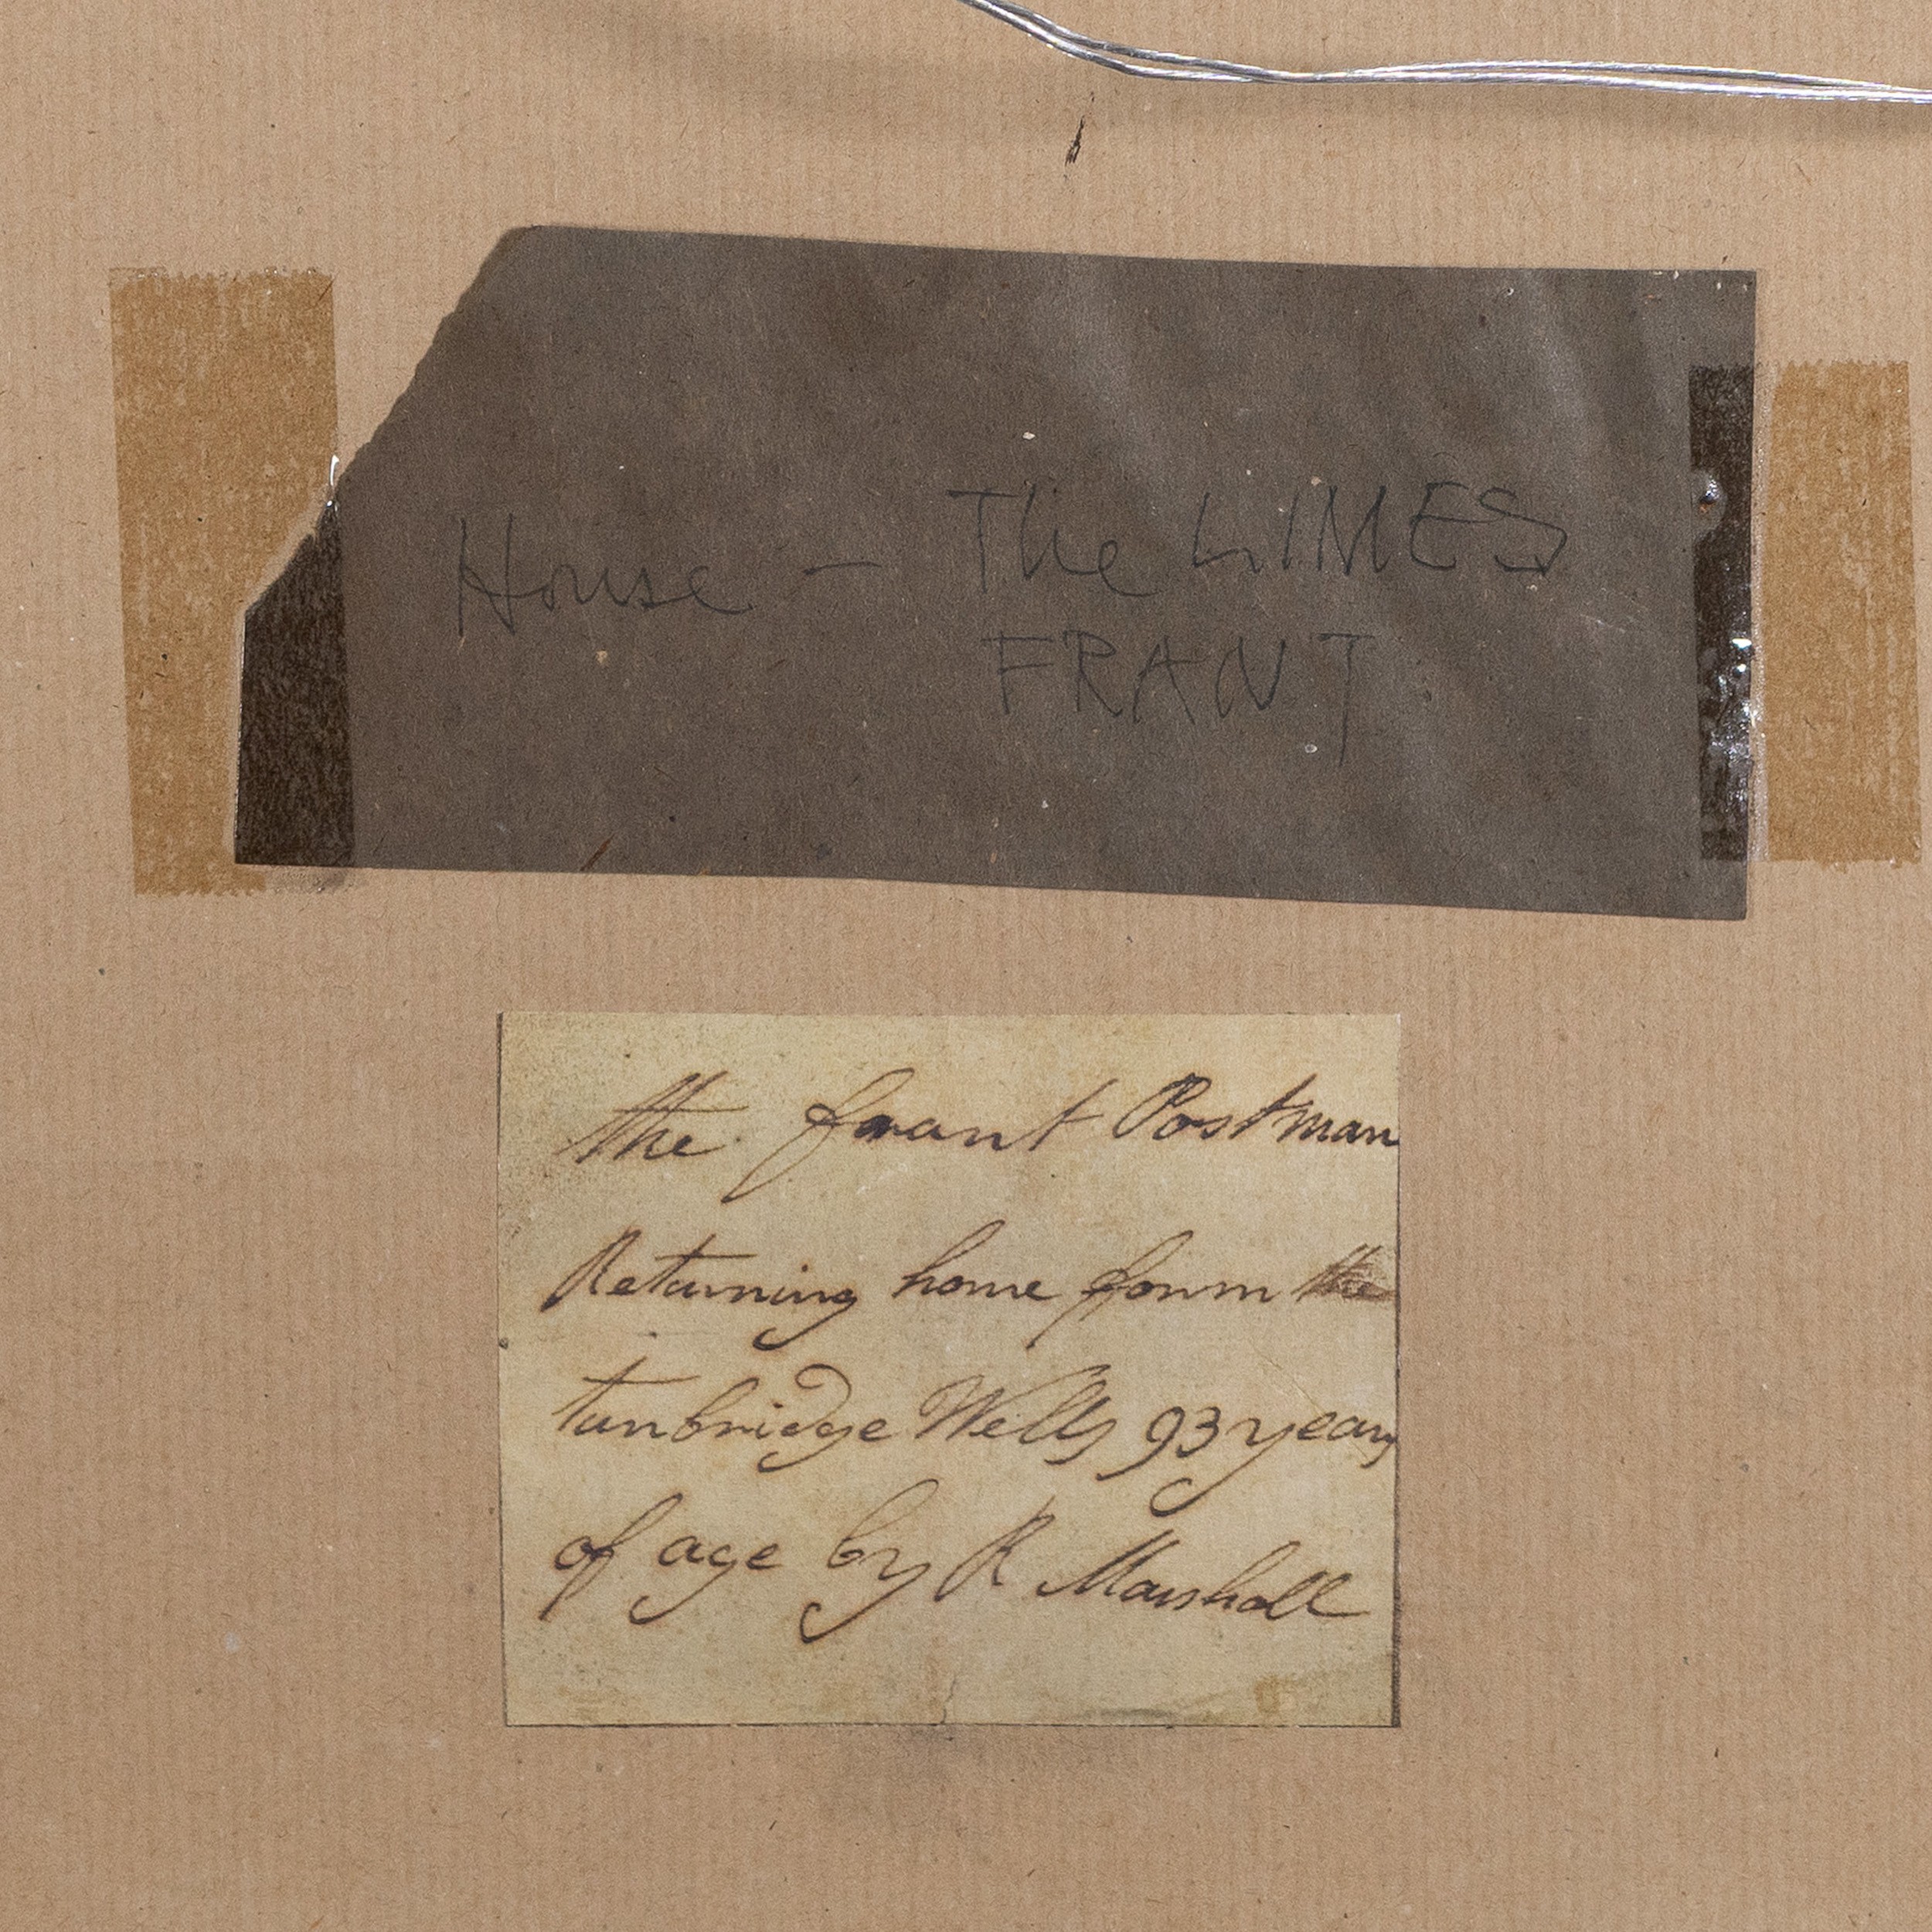 House - The LIMES
FRANT
the frant Postman
Returning home form the
tunbridge Wells 93 years
of age by R Marshall